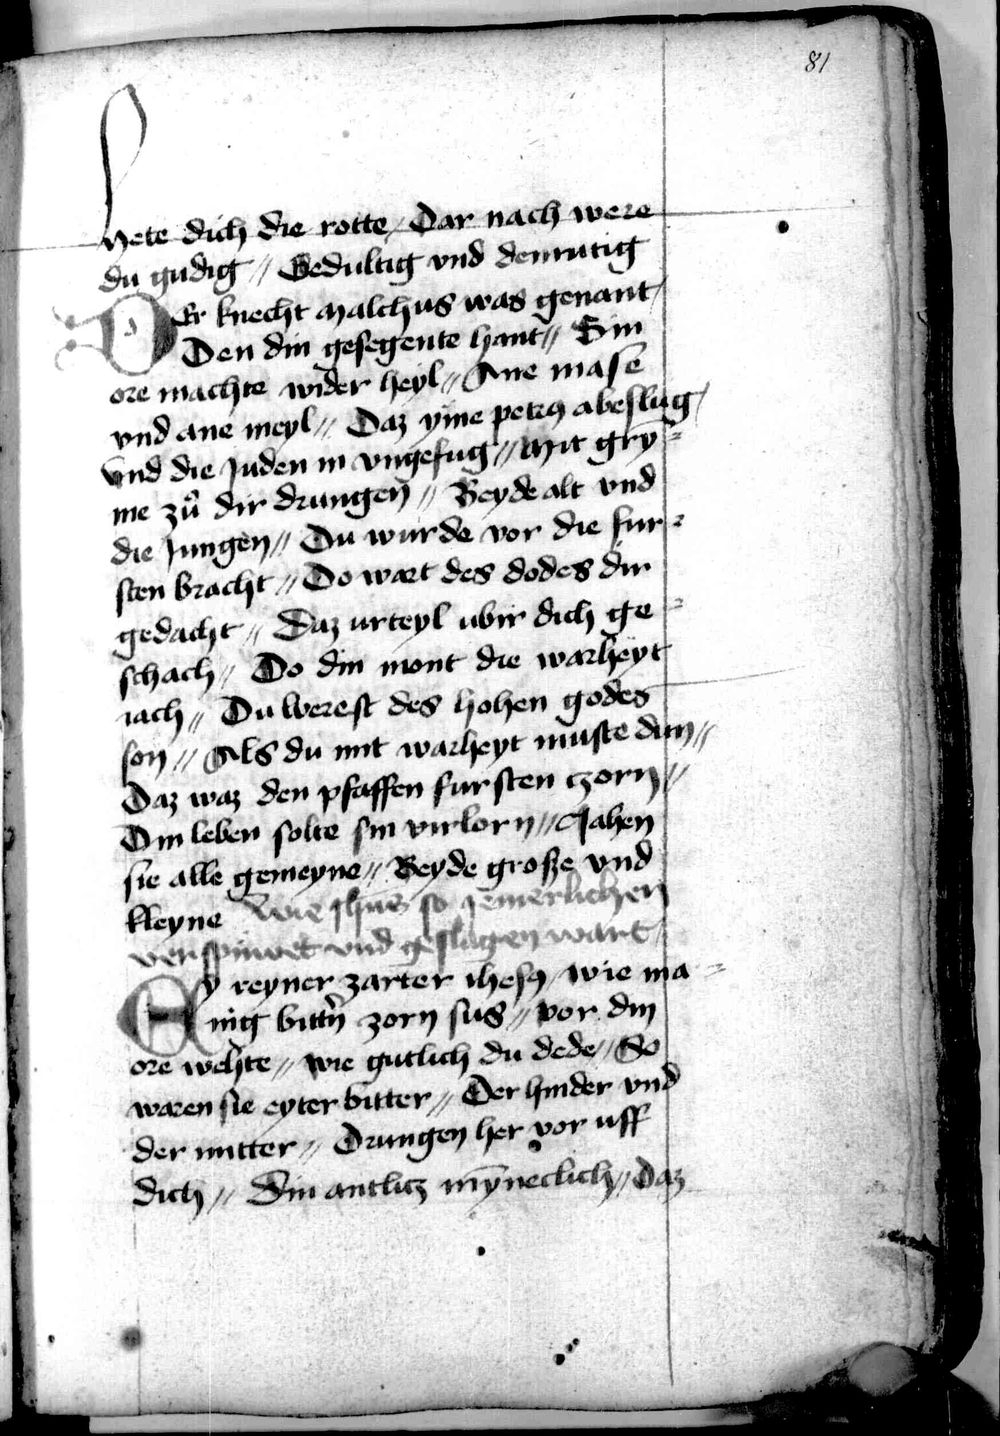 81
hete dich die rotte / Dar nach were
du gudig // Gedultig vnd demutig
DEr knecht malchus was genant /
Den din gesegente hant // Sin
ore machte wider heyl // Ane mase
vnd ane meyl // Daz yme petrus abeslug /
Vnd die Juden in vngefug // Mit gry=
me zů dir drungen // Beyde alt vnd
die Jungen // Du wurde vor die fur=
sten bracht // Do wart des dodes dir
gedacht // Daz urteyl ubir dich ge=
schach // Do din mont die warheyt
iach // Du werest des hohen godes
son // Als du mit warheyt muste dun //
Daz waz den pfaffen fursten czorn //
Din leben solte sin virlorn // Jahen
sie alle gemeyne // Beyde große vnd
kleyne Wie Jhus so jemerlichen
verspuwet vnd geslagen wart /
EY reyner zarter ihesus / wie ma=
nig bittern zorn sus // vor din
ore wehte // wie gutlich du dede // So
waren sie eyter bitter // Der hinder vnd
der mitter // Drungen her vor uff
dich // Din antlicz mȳneclich // Daz